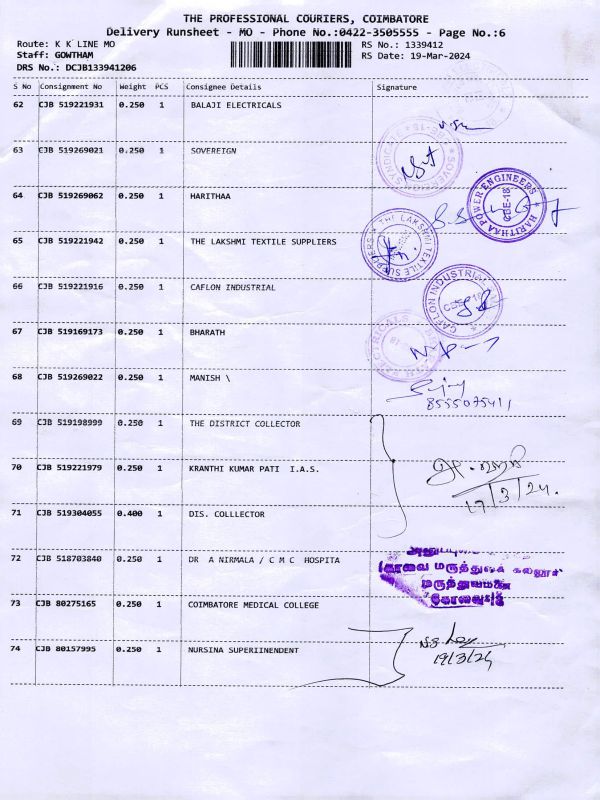 THE PROFESSIONAL COURIERS, COIMBATORE
Delivery Runsheet - MO - Phone No.:0422-3505555 - Page No.:6
Route: K K LINE MO
RS No.: 1339412
Staff: GOWTHAM
RS Date: 19-Mar-2024
DRS No.: DCJB133941206
S No Consignment No Weight PCS Consignee Details Signature
62 CJB 519221931 0.250 1 BALAJI ELECTRICALS
63 CJB 519269021 0.250 1 SOVEREIGN
64 CJB 519269062 0.250 1 HARITHAA
HARITHAA POWER ENGINEERS
CBE-18
65 CJB 519221942 0.250 1 THE LAKSHMI TEXTILE SUPPLIERS
THE LAKSHMI TEXTILE SUPPLIERS
66 CJB 519221916 0.250 1 CAFLON INDUSTRIAL
CAFLON INDUSTRIAL
67 CJB 519169173 0.250 1 BHARATH
68 CJB 519269022 0.250 1 MANISH \
8555075411
69 CJB 519198999 0.250 1 THE DISTRICT COLLECTOR
70 CJB 519221979 0.250 1 KRANTHI KUMAR PATI I.A.S.
17/3/24.
71 CJB 519304055 0.400 1 DIS. COLLLECTOR
72 CJB 518703840 0.250 1 DR A NIRMALA / C M C HOSPITA
கோவை மருத்துவக்
மருத்துவமனை
73 CJB 80275165 0.250 1 COIMBATORE MEDICAL COLLEGE
74 CJB 80157995 0.250 1 NURSINA SUPERIINENDENT
19/3/24